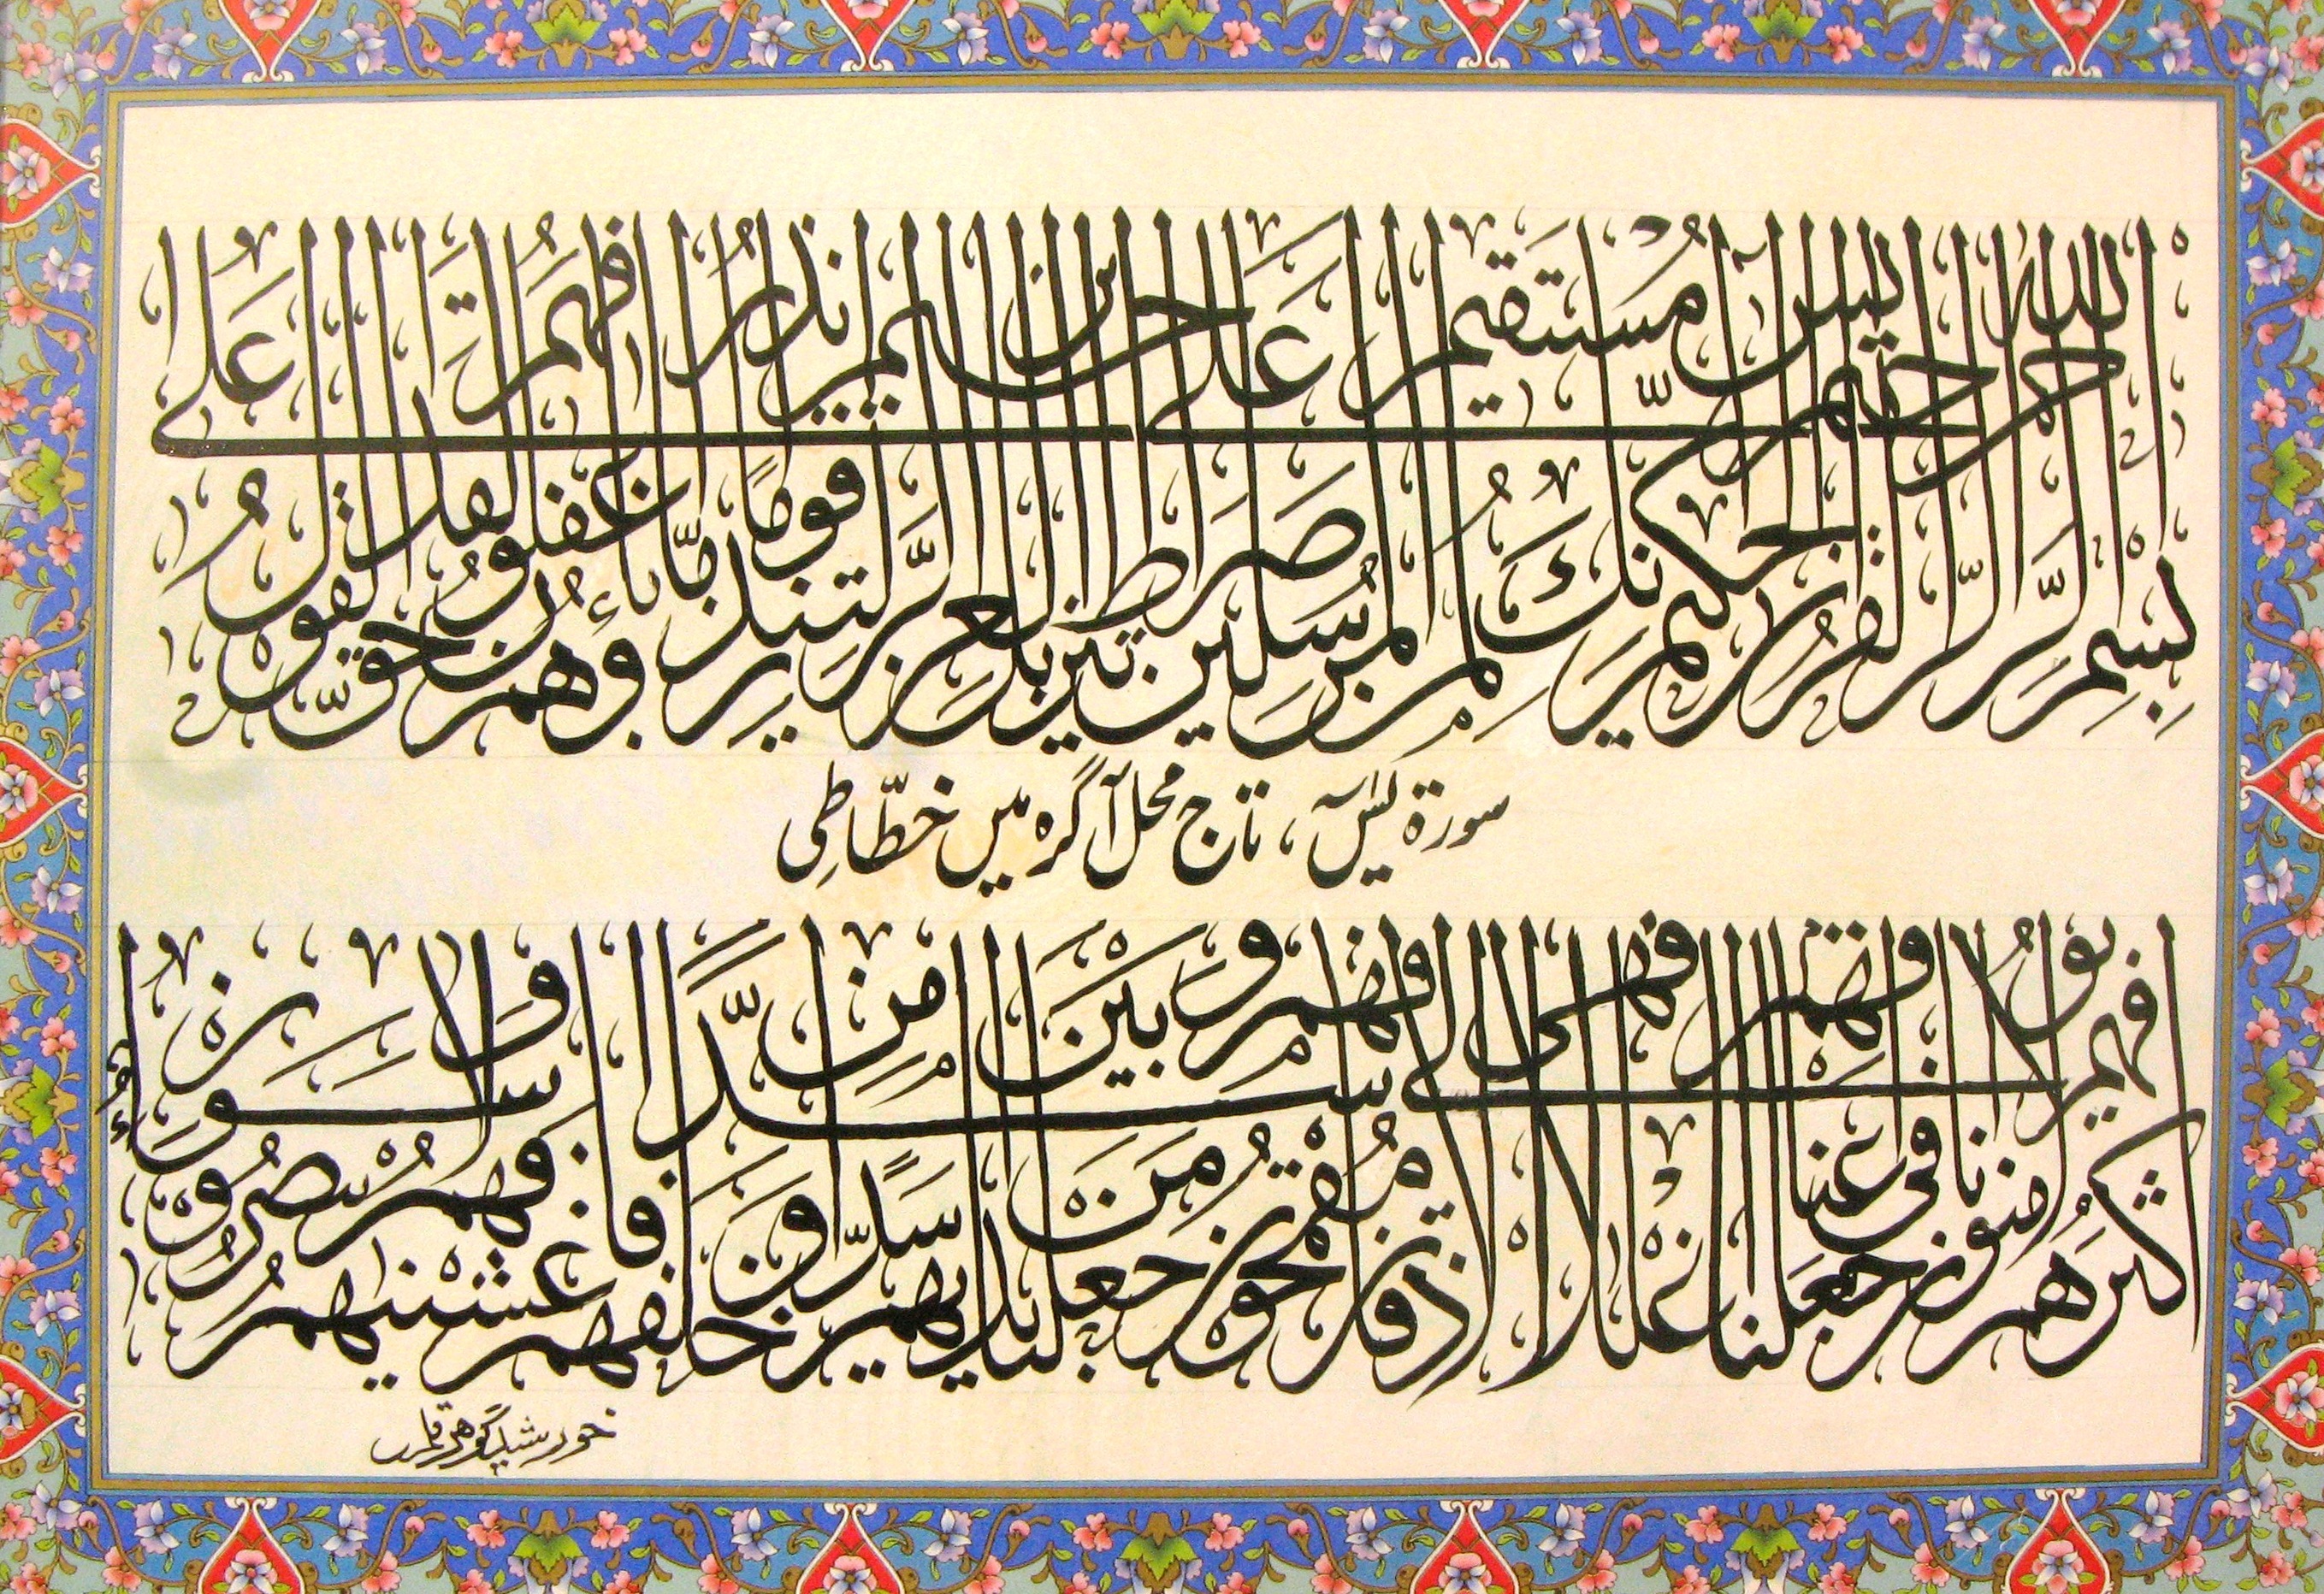 بسم الله الرحمن الرحيم يس والقران الحكيم انك لمن المرسلين على صراط مستقيم تنزيل العزيز الرحيم لتنذر قوما ما انذر اباؤهم فهم غفلون لقد حق القول على
سورۃ یٰسٓ ، تاج محل آگرہ میں خطّاطی
اكثرهم فهم لا يؤمنون انا جعلنا فى اعناقهم اغللا فهى الى الاذقان فهم مقمحون وجعلنا من بين ايديهم سدا ومن خلفهم سدا فاغشينهم فهم لا يبصرون وسواء
خورشید گوهر قلم